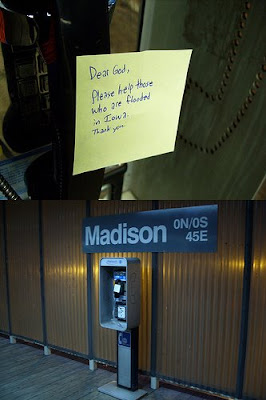 Dear God,
Please help those
who are flooded
in Iowa.
Thank you
Madison
0N/0S
45E